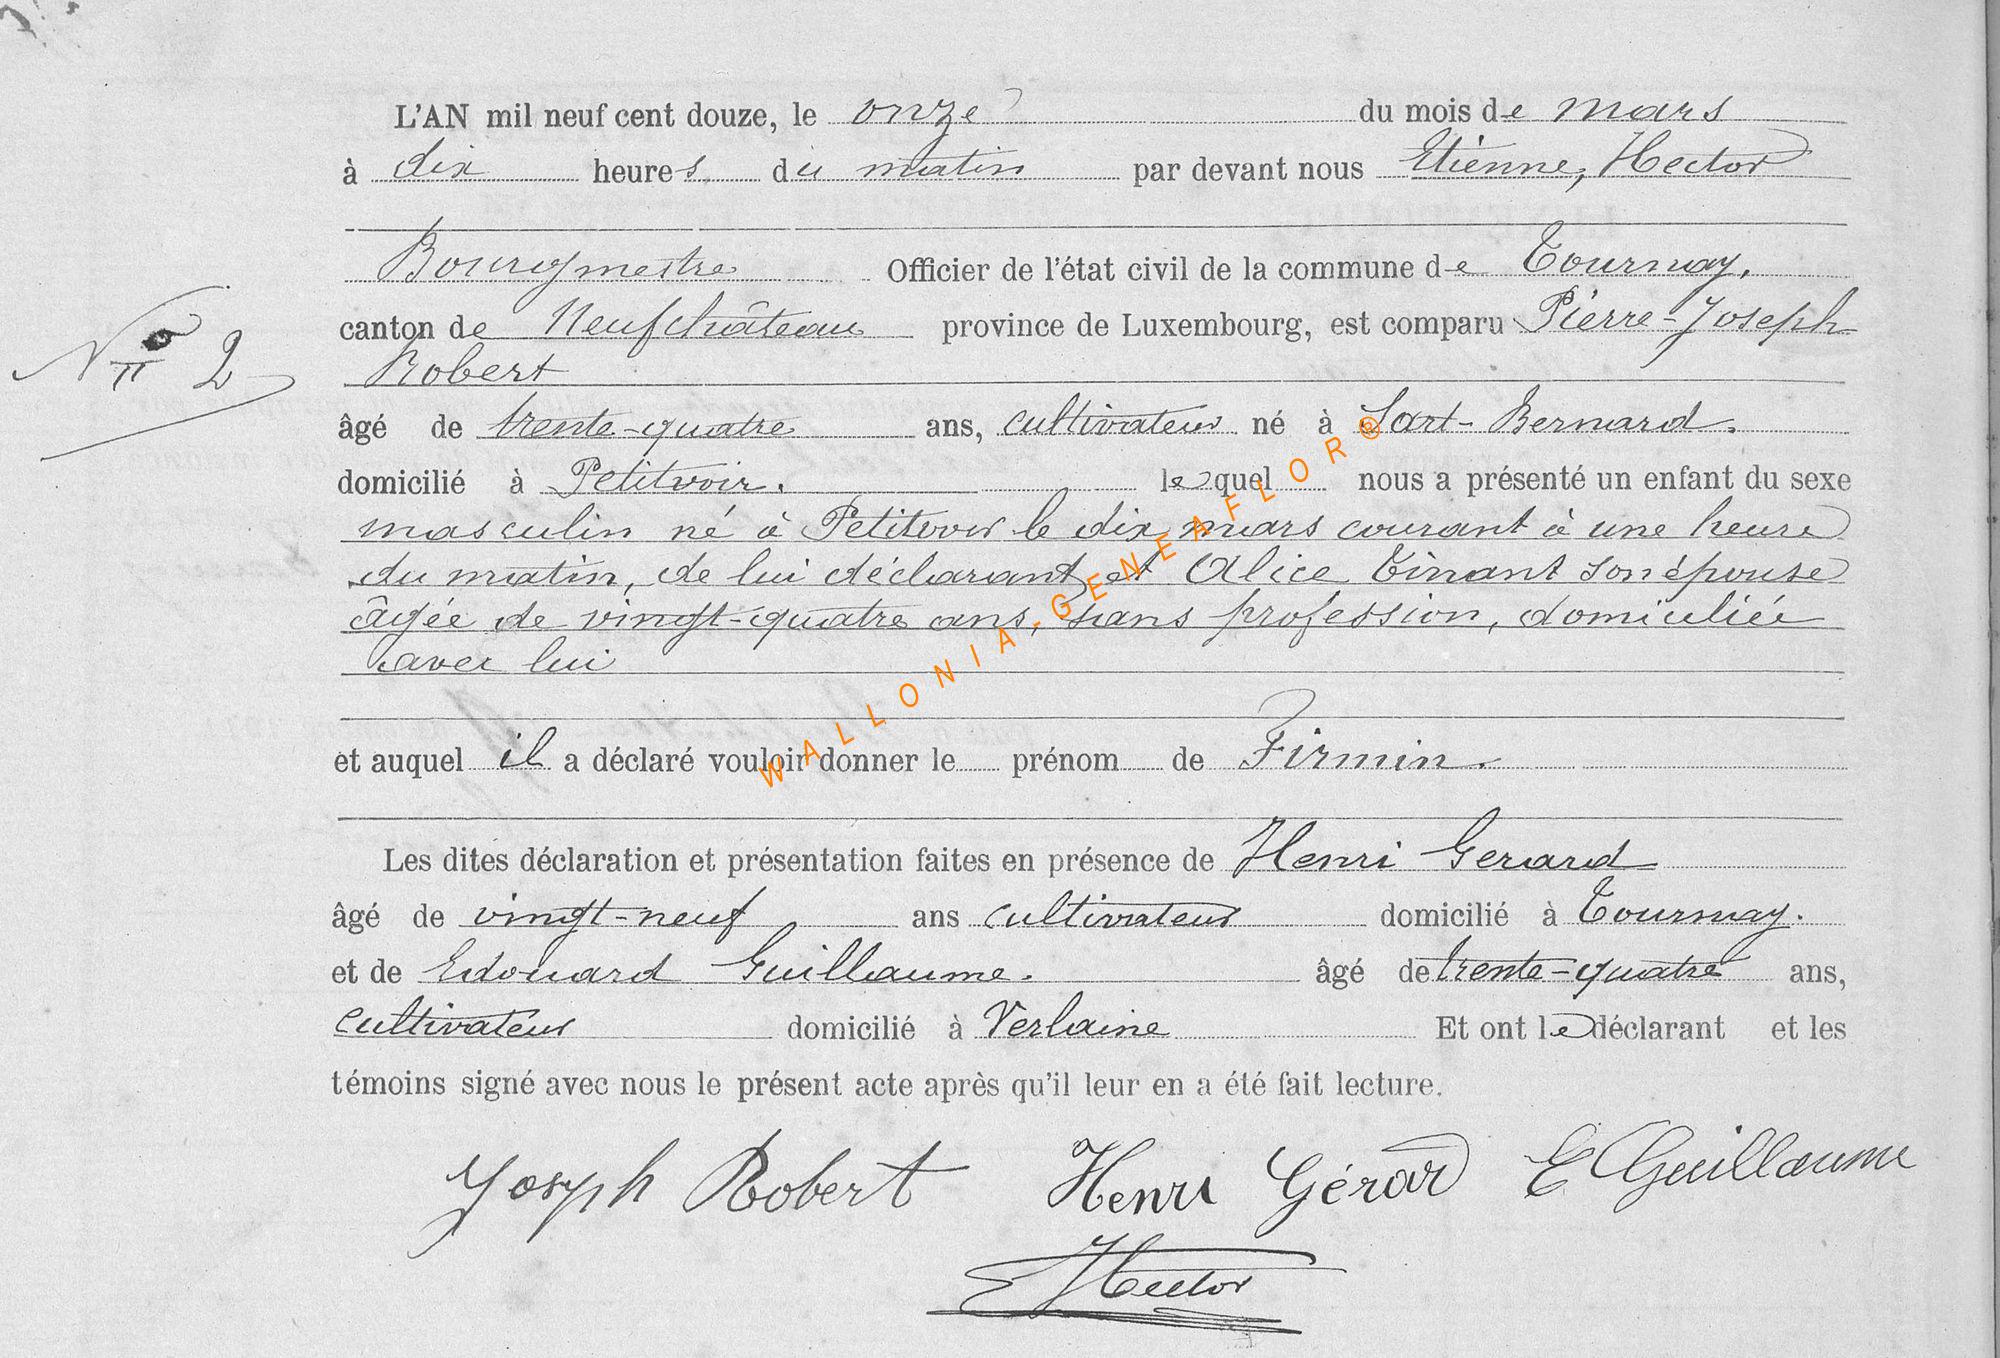 L'AN mil neuf cent douze, le onze du mois de mars
à dix heures du matin par devant nous Etienne, Hector
Bourgmestre Officier de l'état civil de la commune de Tournay,
canton de Neufchâteau province de Luxembourg, est comparu Pierre-Joseph
N° 2
Robert
âgé de trente-quatre ans, cultivateur né à Sart-Bernard.
domicilié à Petitvoir. lequel nous a présenté un enfant du sexe
masculin né à Petitvoir le dix mars courant à une heure
du matin, de lui déclarant et Alice Tinant son épouse
âgée de vingt-quatre ans, sans profession, domiciliée
avec lui
WALLONIA-GENEAFLOR®
et auquel il a déclaré vouloir donner le prénom de Firmin.
Les dites déclaration et présentation faites en présence de Henri Gerard
âgé de vingt-neuf ans cultivateur domicilié à Tournay.
et de Edouard Guillaume. âgé de trente-quatre ans,
cultivateur domicilié à Verlaine Et ont le déclarant et les
témoins signé avec nous le présent acte après qu'il leur en a été fait lecture.
Joseph Robert Henri Gérard E Guillaume
E Hector